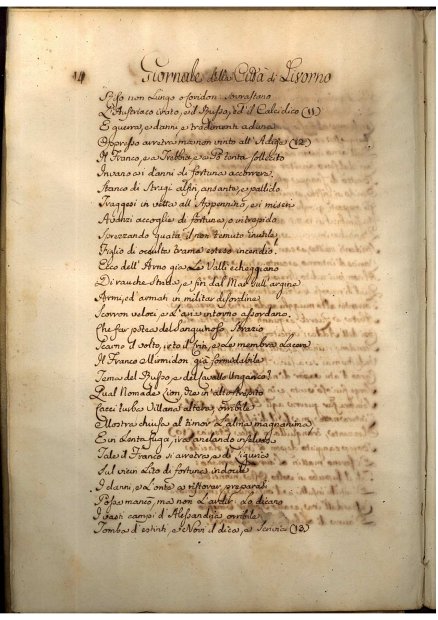 14 Giornale della Città di Livorno
non lungo
L'Austriaco irato, ed il Russo, ed il Calcidico (11)
E guerra, e danni e tradimenti aduna
Oppresso arretra ma non vinto all' Adige (12)
Il Franco, e a Trebbia, e a Po tenta sollecito
Invano ai danni di fortuna accorrere.
Stanco di Stragi alfin, ansante, e pallido
Traggesi in vetta all' Appennino, e i miseri
Avanzi accoglie di fortuna, o intrepido
Sprezzando guata il non temuto inutile
Figlio di occulte trame esteso incendio.
Ecco dell' Arno già le Valli echeggiano
Di rauche Strida, e fin dal Mar sull' argine
Armi, ed armati in militar disordine
Scorron veloci e l'aria intorno assordano.
Che far potea del Sanguinoso Strazio
Scarno il volto, irto il crin, e le membra lacere
Il Franco Mirmidon già formidabile
Tema del Russo, e del Cavallo Ungarico?
Qual Nomade Lion, se in alto strepito
Cacci turba Villana altera, orribile
Mostra chiusa al timor l'alma magnanima
E in lenta fuga, ira anelando
Tale il Franco si arretra, e di Liguria
Sul vicin Lito di fortuna indocile
I danni, e l'onte a ristorar preparasi
Possa mancò, ma non l'ardir: lo dicano
I vasti campi d'Alessandria orribile
Tomba d'estinti, e Novi il dica, e Scrivia (13)